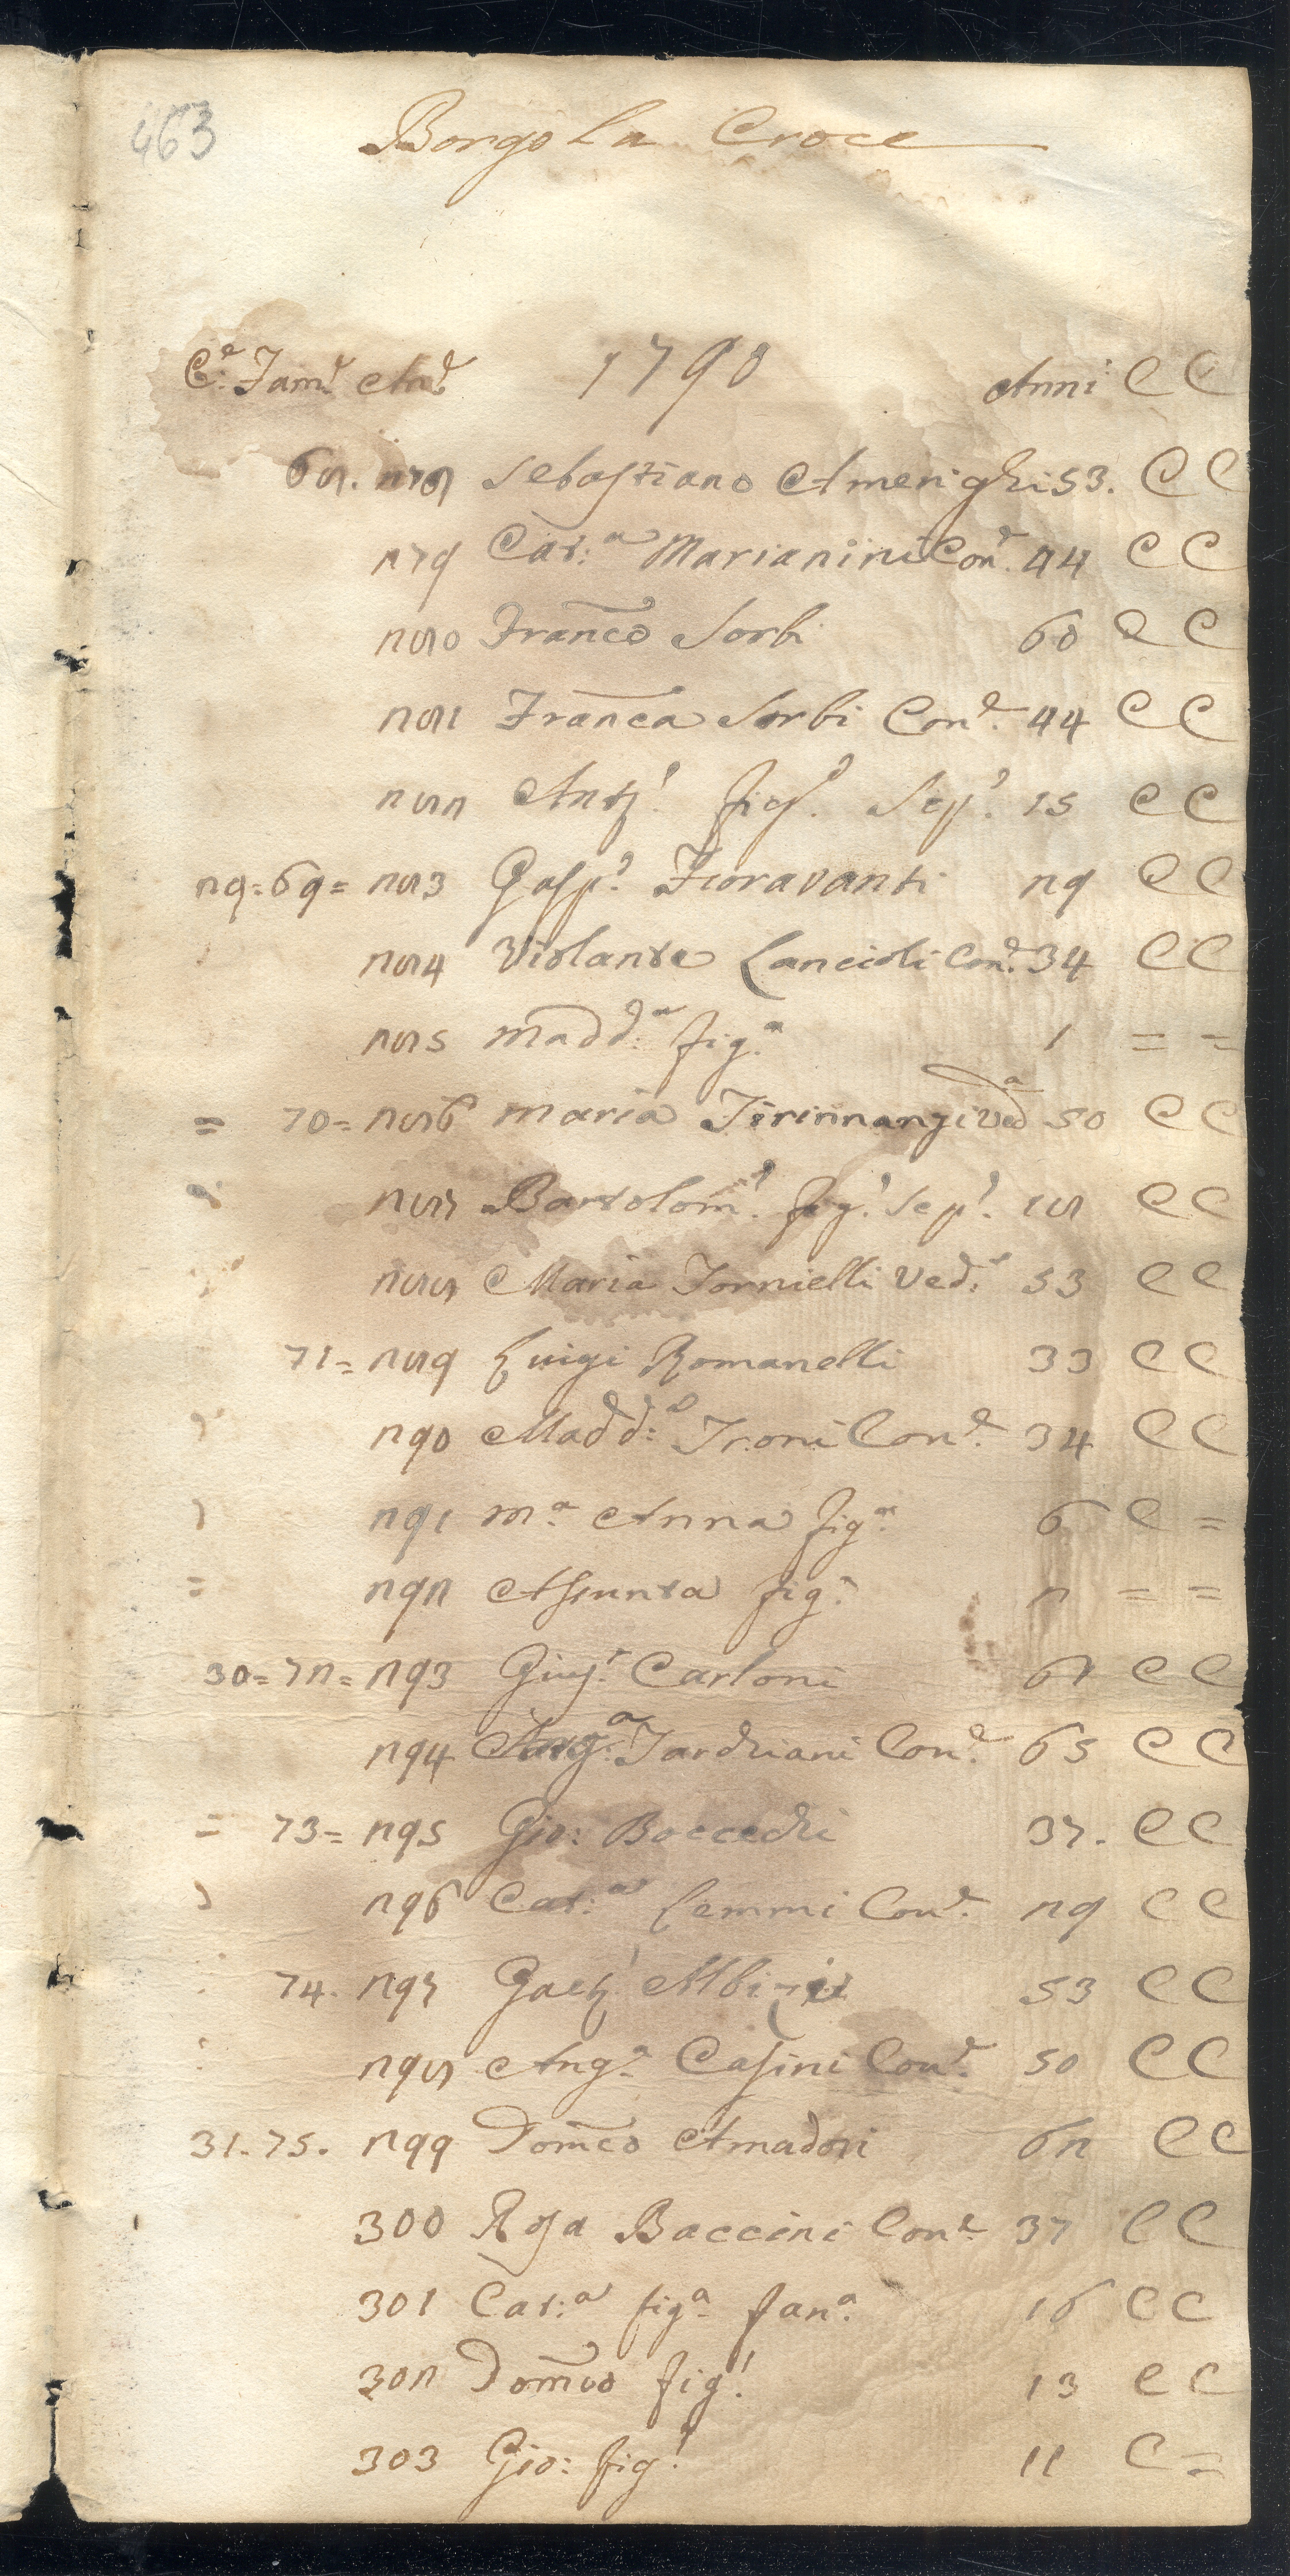 463
Borgo La Croce
C.e Fam.e An.e 1790 Anni C C
68. 278 Sebastiano Amerighi 53. C C
279 Cat:a Marianini Con.e 44 C C
280 Franco Sorbi 60 C C
281 Franca Sorbi Con.e 44 C C
282 Ant.o fig.o Sep.o 15 C C
29=69= 283 Gasp.o Fioravanti 29 C C
284 Violante Lancioli Con.e 34 C C
285 Madd:a fig.a 1 = =
= 70= 286 Maria Tirinnanzi Ved.a 50 C C
287 Bartolom.o fig.o Sep.o 18 C C
288 Maria Tornielli Ved.a 53 C C
71= 289 Luigi Romanelli 33 C C
290 Madd:a Troni Con.e 34 C C
291 M.a Anna fig.a 6 C =
= 292 Assunta fig.a 2 = =
30=72= 293 Gius.e Carloni 67 C C
294 Tardriani Con.e 65 C C
= 73= 295 Gio: Boccechi 37. C C
296 Cat:a Lemmi Con.e 29 C C
74. 297 Gaet.o Albizzi 53 C C
298 Ang.a Casini Con.e 50 C C
31.75. 299 Domco Amadori 62 C C
300 Rosa Baccini Con.e 37 C C
301 Cat:a fig.a fan.a 16 C C
302 Domco fig.o 13 C C
303 Gio: fig.o 11 C =